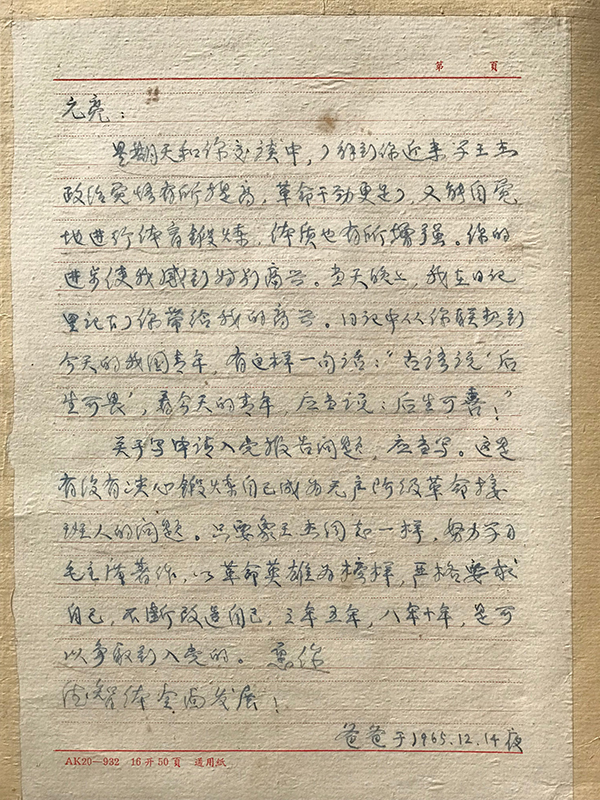 第 頁
元亮：
星期天和你交谈中，了解到你近来学王杰
政治觉悟有所提高，革命干劲更足了，又能自觉
地进行体育锻炼，体质也有所增强。你的
进步使我感到特别高兴。当天晚上，我在日记
里记下了你带给我的高兴。日记中从你联想到
今天的我国青年，有这样一句话：“古语说‘后
生可畏’，看今天的青年，应当说：后生可喜！”
关于写申请入党报告问题，应当写。这是
有没有决心锻炼自己成为无产阶级革命接
班人的问题。只要象王杰同志一样，努力学习
毛主席著作，以革命英雄为榜样，严格要求
自己，不断改造自己，三年五年，八年十年，是可
以争取到入党的。 愿你
德智体全面发展！
爸爸于1965.12.14夜
AK20—932 16开50頁 通用纸